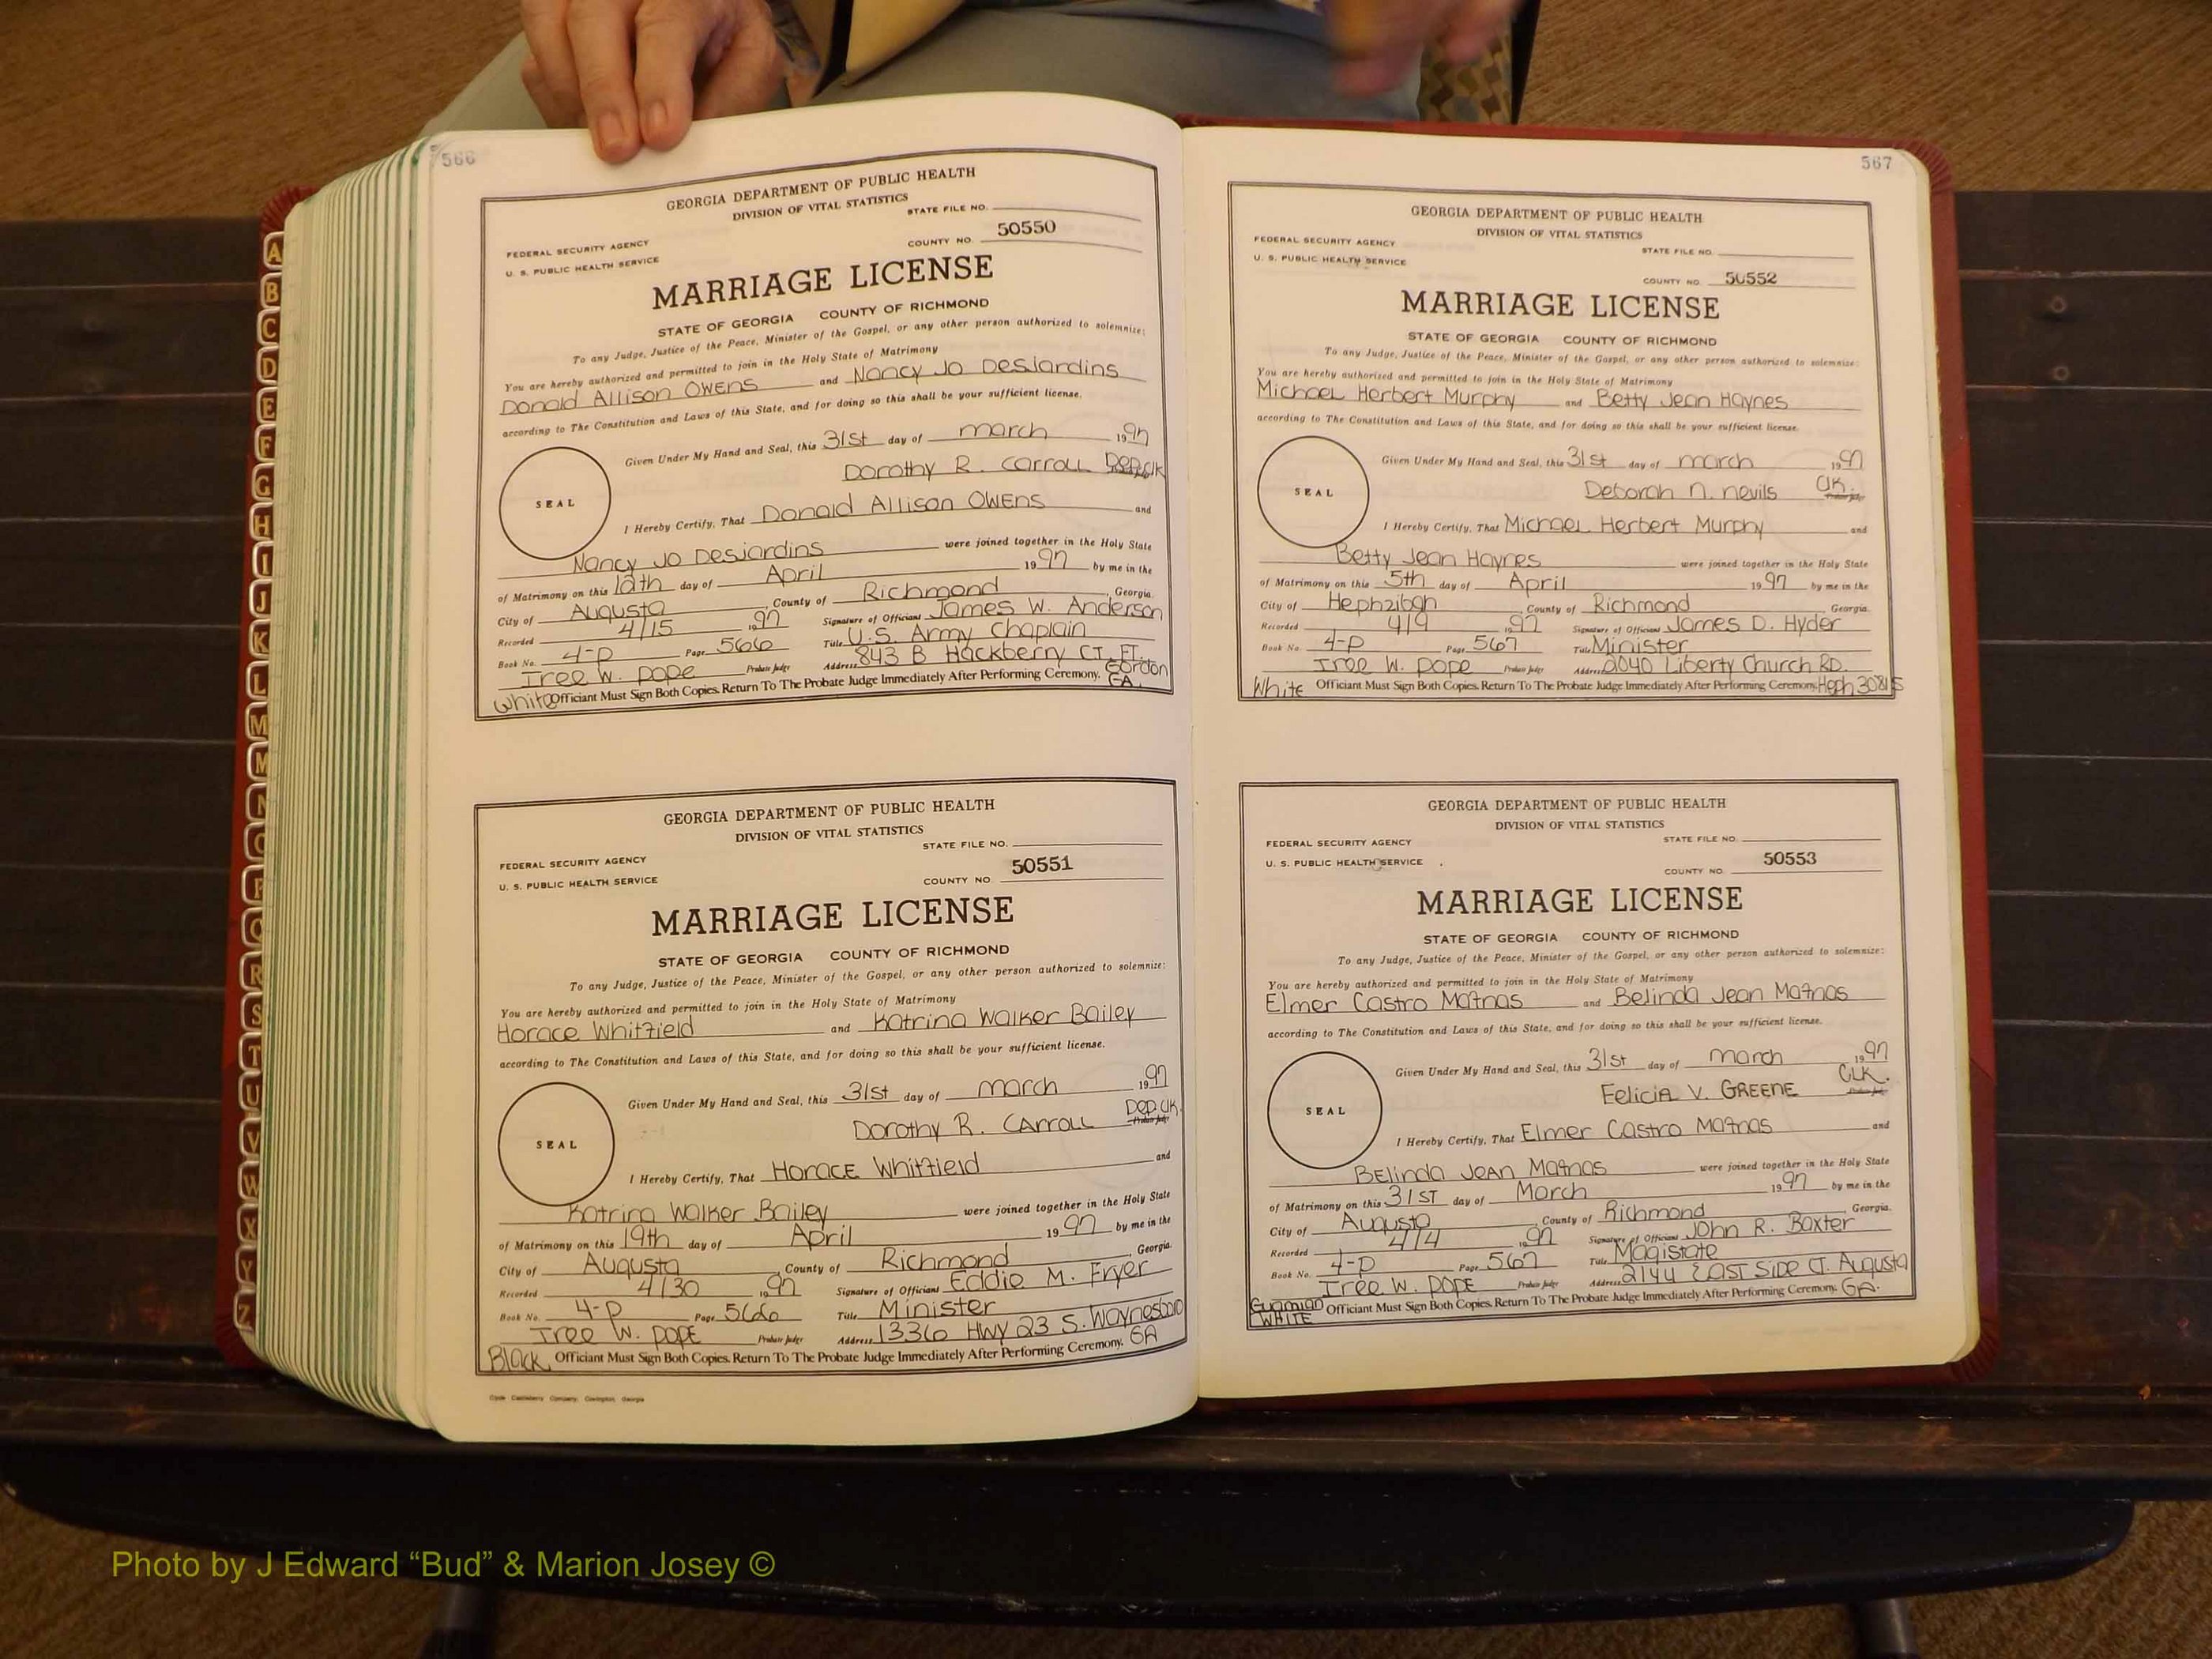 566
GEORGIA DEPARTMENT OF PUBLIC HEALTH
DIVISION OF VITAL STATISTICS
STATE FILE NO.
FEDERAL SECURITY AGENCY
COUNTY NO. 50550
U. S. PUBLIC HEALTH SERVICE
MARRIAGE LICENSE
STATE OF GEORGIA COUNTY OF RICHMOND
To any Judge, Justice of the Peace, Minister of the Gospel, or any other person authorized to solemnize:
You are hereby authorized and permitted to join in the Holy State of Matrimony
Donald Allison Owens and Nancy Jo Desjardins
according to The Constitution and Laws of this State, and for doing so this shall be your sufficient license.
Given Under My Hand and Seal, this 31st day of march 1997
Dorothy R. Carroll Dep. Clk
SEAL
I Hereby Certify, That Donald Allison Owens and
Nancy Jo Desjardins were joined together in the Holy State
of Matrimony on this 12th day of April 1997 by me in the
City of Augusta, County of Richmond, Georgia.
Recorded 4/15 1997 Signature of Officiant James W. Anderson
Book No. 4-P Page 566 Title U.S. Army Chaplain
Tree W. Pope Probate Judge Address 843 B Hackberry CT. FT. Gordon GA.
White Officiant Must Sign Both Copies. Return To The Probate Judge Immediately After Performing Ceremony.
GEORGIA DEPARTMENT OF PUBLIC HEALTH
DIVISION OF VITAL STATISTICS
STATE FILE NO.
FEDERAL SECURITY AGENCY
COUNTY NO. 50551
U. S. PUBLIC HEALTH SERVICE
MARRIAGE LICENSE
STATE OF GEORGIA COUNTY OF RICHMOND
To any Judge, Justice of the Peace, Minister of the Gospel, or any other person authorized to solemnize:
You are hereby authorized and permitted to join in the Holy State of Matrimony
Horace Whitfield and Katrina Walker Bailey
according to The Constitution and Laws of this State, and for doing so this shall be your sufficient license.
Given Under My Hand and Seal, this 31st day of march 1997
Dorothy R. Carroll Dep. Clk. Probate Judge
SEAL
I Hereby Certify, That Horace Whitfield and
Katrina Walker Bailey were joined together in the Holy State
of Matrimony on this 19th day of April 1997 by me in the
City of Augusta, County of Richmond, Georgia.
Recorded 4/30 1997 Signature of Officiant Eddie M. Fryer
Book No. 4-P Page 566 Title Minister
Tree W. Pope Probate Judge Address 1336 Hwy 23 S. Waynesboro GA
Black Officiant Must Sign Both Copies. Return To The Probate Judge Immediately After Performing Ceremony.
Clyde Castleberry Company, Covington, Georgia
567
GEORGIA DEPARTMENT OF PUBLIC HEALTH
DIVISION OF VITAL STATISTICS
FEDERAL SECURITY AGENCY
STATE FILE NO.
U. S. PUBLIC HEALTH SERVICE
COUNTY NO. 50552
MARRIAGE LICENSE
STATE OF GEORGIA COUNTY OF RICHMOND
To any Judge, Justice of the Peace, Minister of the Gospel, or any other person authorized to solemnize:
You are hereby authorized and permitted to join in the Holy State of Matrimony
Michael Herbert Murphy and Betty Jean Haynes
according to The Constitution and Laws of this State, and for doing so this shall be your sufficient license.
Given Under My Hand and Seal, this 31st day of march 1997
Deborah N. Nevils Clk. Probate Judge
SEAL
I Hereby Certify, That Michael Herbert Murphy and
Betty Jean Haynes were joined together in the Holy State
of Matrimony on this 5th day of April 1997 by me in the
City of Hephzibah, County of Richmond, Georgia.
Recorded 4/9 1997 Signature of Officiant James D. Hyder
Book No. 4-P Page 567 Title Minister
Tree W. Pope Probate Judge Address 2040 Liberty Church RD.
White Officiant Must Sign Both Copies. Return To The Probate Judge Immediately After Performing Ceremony. Heph 30815
GEORGIA DEPARTMENT OF PUBLIC HEALTH
DIVISION OF VITAL STATISTICS
FEDERAL SECURITY AGENCY
STATE FILE NO.
U. S. PUBLIC HEALTH SERVICE
COUNTY NO. 50553
MARRIAGE LICENSE
STATE OF GEORGIA COUNTY OF RICHMOND
To any Judge, Justice of the Peace, Minister of the Gospel, or any other person authorized to solemnize:
You are hereby authorized and permitted to join in the Holy State of Matrimony
Elmer Castro Mafnas and Belinda Jean Mafnas
according to The Constitution and Laws of this State, and for doing so this shall be your sufficient license.
Given Under My Hand and Seal, this 31st day of march 1997
Felicia V. Greene CLK. Probate Judge
SEAL
I Hereby Certify, That Elmer Castro Mafnas and
Belinda Jean Mafnas were joined together in the Holy State
of Matrimony on this 31ST day of March 1997 by me in the
City of Augusta, County of Richmond, Georgia.
Recorded 4/4 1997 Signature of Officiant John R. Baxter
Book No. 4-P Page 567 Title Magistate
Tree W. Pope Probate Judge Address 2144 East Side CT. Augusta GA.
WHITE Officiant Must Sign Both Copies. Return To The Probate Judge Immediately After Performing Ceremony.
A
B
C
D
E
F
G
H
I
J
K
L
M
M
N
O
P
Q
R
S
T
U
V
W
X
Y
Z
Photo by J Edward “Bud” & Marion Josey ©